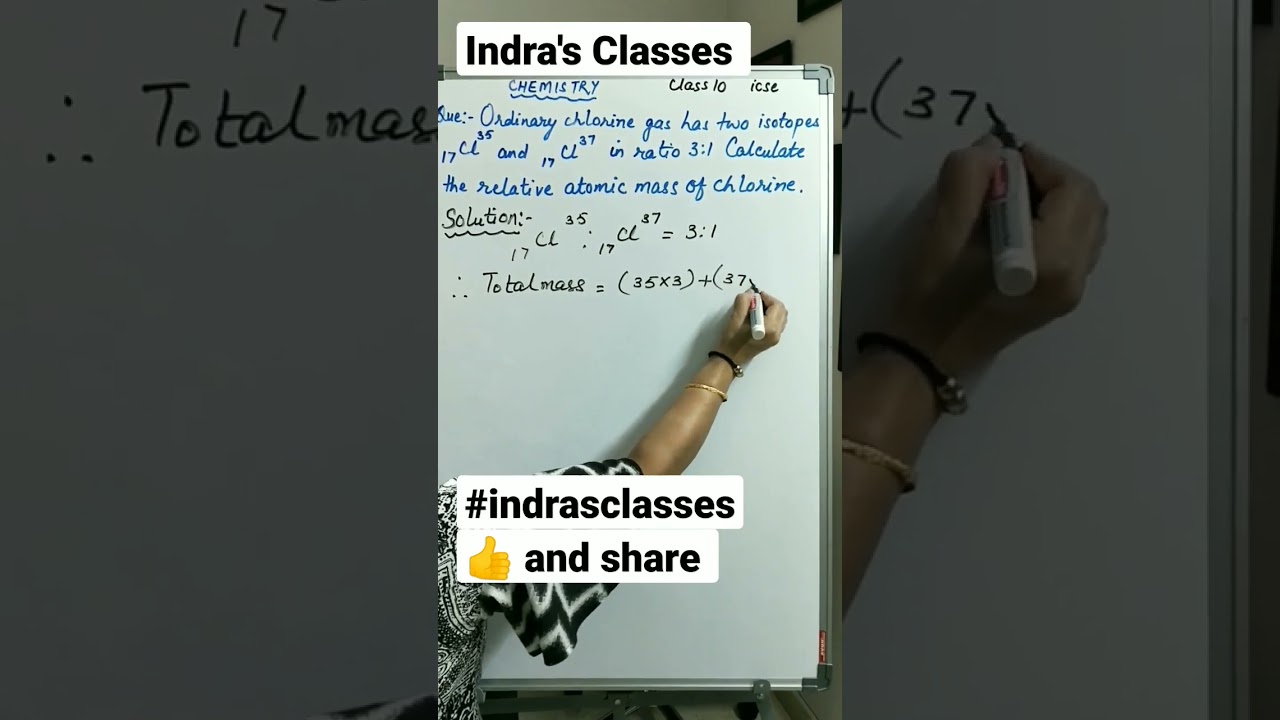 Indra's Classes
CHEMISTRY Class 10 icse
Que:- Ordinary chlorine gas has two isotopes
₁₇Cl³⁵ and ₁₇Cl³⁷ in ratio 3:1 Calculate
the relative atomic mass of chlorine.
Solution:-
₁₇Cl³⁵ : ₁₇Cl³⁷ = 3:1
∴ Total mass = (35×3)+(37
#indrasclasses
👍 and share
17
∴ Total mass
+(37